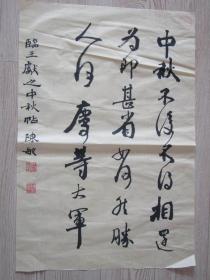 中秋不復不得相還
為即甚省如何然勝
人何慶等大軍
臨王獻之中秋帖 陳敏